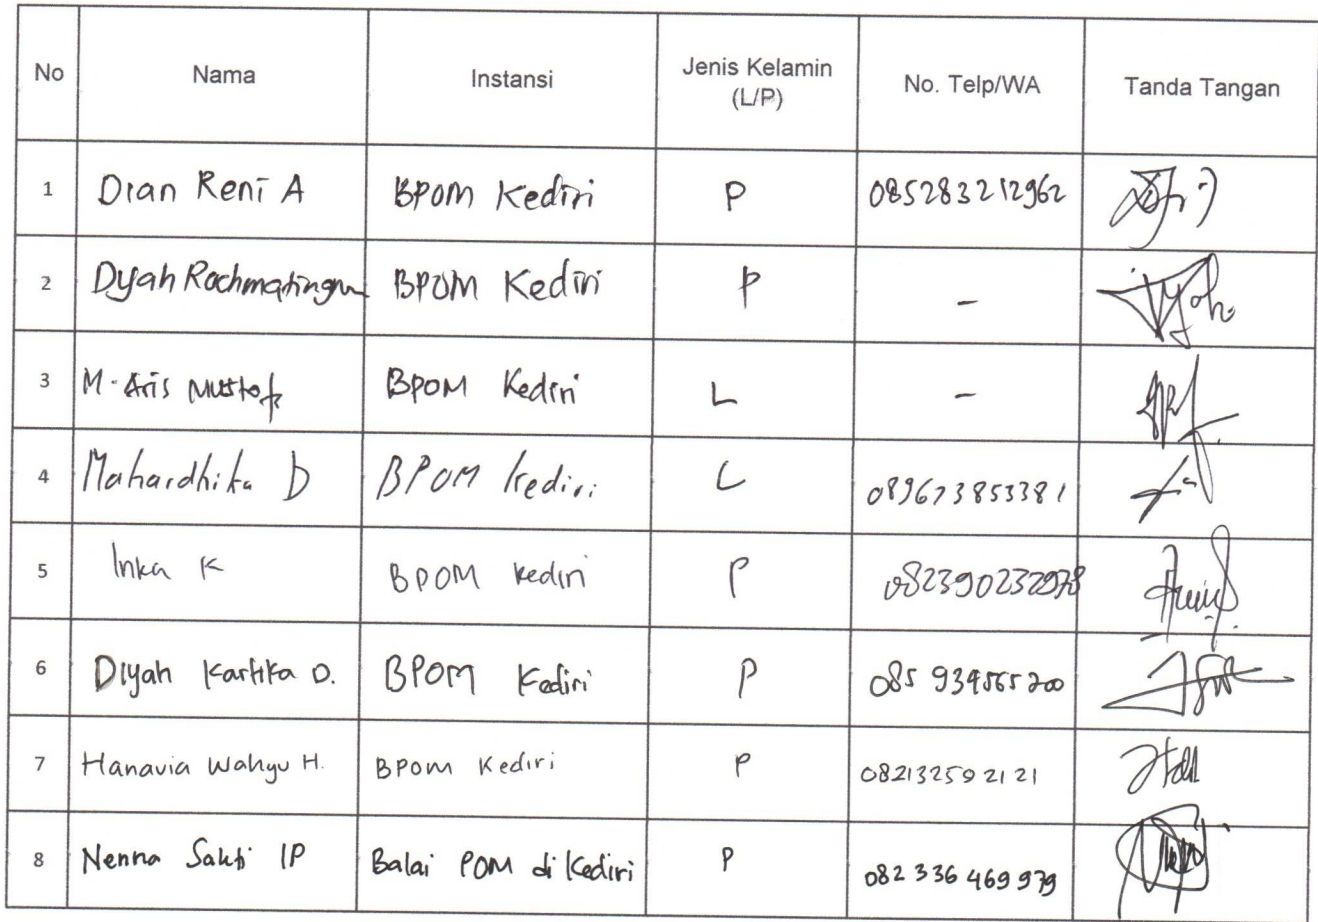 No Nama Instansi Jenis Kelamin (L/P) No. Telp/WA Tanda Tangan
1 Dian Reni A BPOM Kediri P 085283212962
2 Dyah Rachmatingrum BPOM Kediri P -
3 M. Aris Mustofa BPOM Kediri L -
4 Mahardhika D BPOM Kediri L 089673853381
5 Inka K BPOM Kediri P 082390232978
6 Diyah Kartika D. BPOM Kediri P
7 Hanavia Wahyu H. BPOM Kediri P 082132592121
8 Nenna Sakti IP Balai POM di Kediri P 082 336 469 979